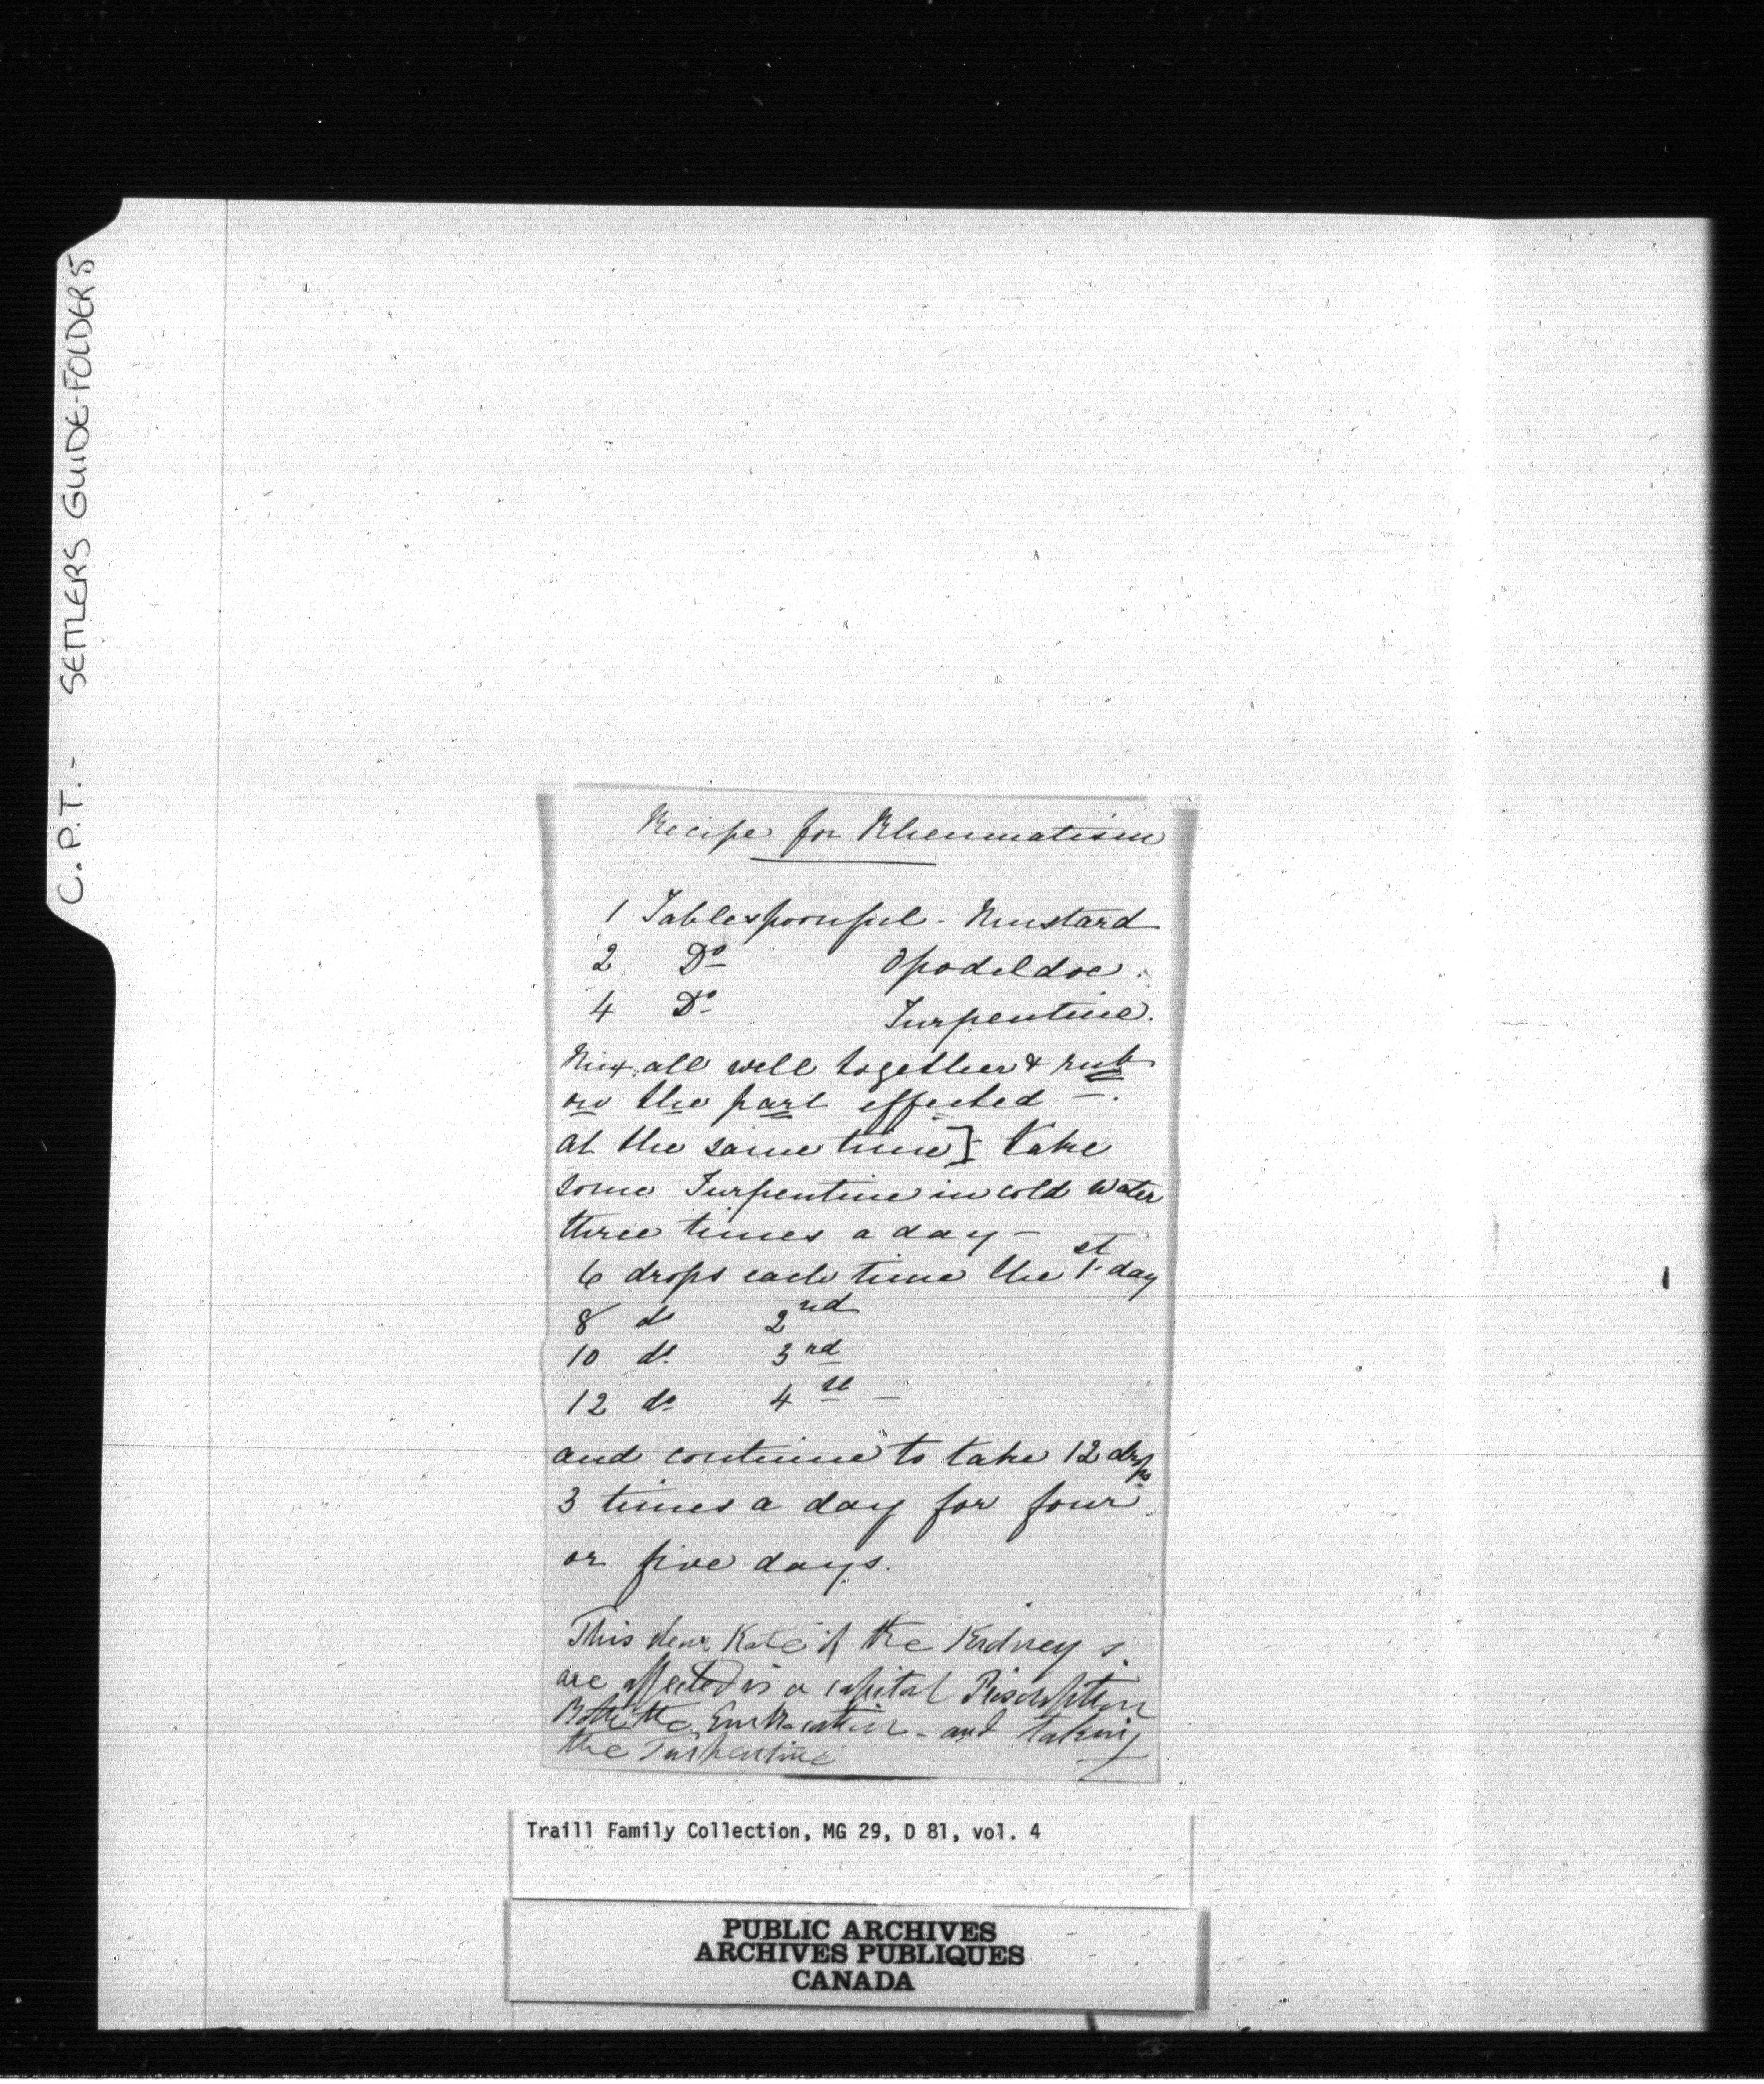 C.P.T. - SETTLERS GUIDE-FOLDER 5
Recipe for Rheumatism
1 Tablespoonful - Mustard
2 Do Opodeldoc.
4 Do Turpentine.
Mix all well together & rub
on the part effected -.
at the same time] - take
some Turpentine in cold water
three times a day -
6 drops each time the 1st day
8 do 2nd
10 do 3rd
12 do 4th -
and continue to take 12 drops
3 times a day for four
or five days.
This dear Kate if the Kidneys
are affected is a capital Priscription
Both the Embrocation - and taking
the Turpentine
Traill Family Collection, MG 29, D 81, vol. 4
PUBLIC ARCHIVES
ARCHIVES PUBLIQUES
CANADA